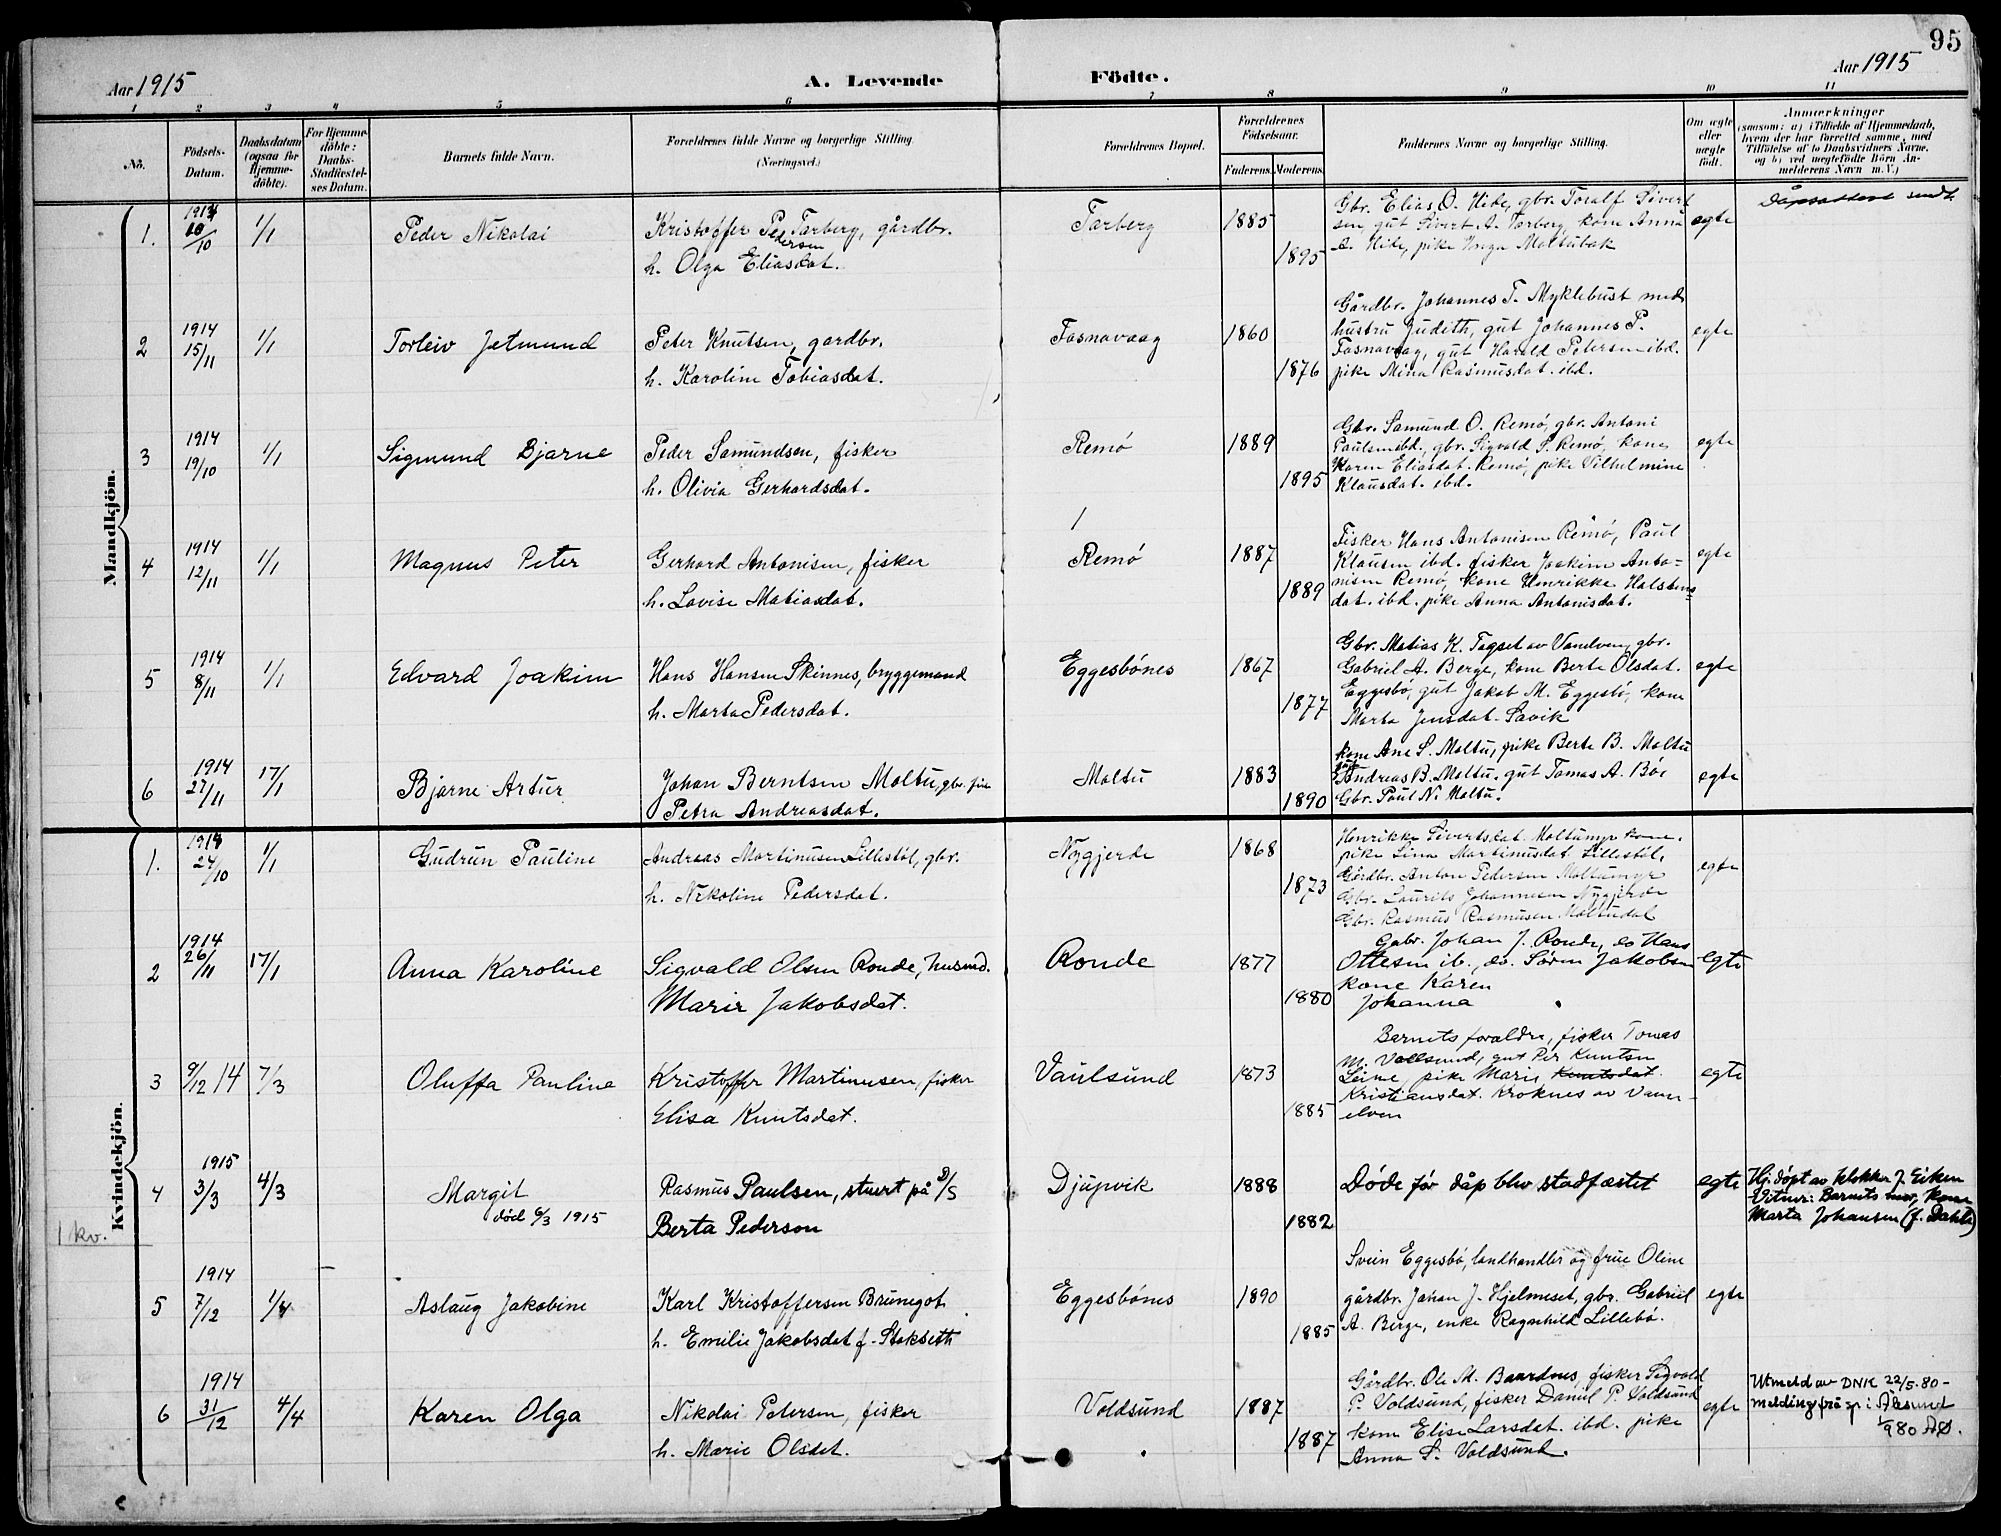 95
Aar 1915
A. Levende
Födte.
Aar 1915
1 2 3 4 5 6 7 8 9 10 11
Nö.
Födsels-Datum.
Daabsdatum (ogsaa for Hjemme-döbte).
For Hjemme-döbte: Daabs-Stadfæstel-ses Datum.
Barnets fulde Navn.
Forældrenes fulde Navne og borgerlige Stilling (Næringsvei.)
Forældrenes Bopæl.
Forældrenes Födselsaar.
Faderens. Moderens.
Faddernes Navne og borgerlige Stilling.
Om ægte eller uægte födt.
Anmærkninger
(saasom: a) i Tilfælde af Hjemmedaab, hvem der har forrettet samme, med Tilföielse af to Daabsvidners Navne, og b) ved uegtefödte Börn An-melderens Navn m. V.)
Mandkjön.
1. 1914 10/10 1/1 Peder Nikolai
Kristoffer P. Tarberg, gårdbr.
Pedersen
h. Olga Eliasdat.
Tarberg 1885 1895
Gbr. Elias O. Hide, gbr. Toralf Sivert
sen, gut Sivert A. Tarberg, kone Anna
E. Hide, pike Inga Moltubak
egte
Dåpsattest sendt.
2 1914 15/11 1/1 Torleiv Jetmund
Peter Knutsen, gardbr.
h. Karoline Tobiasdat.
Fosnavaag 1860 1876
Gårdbr. Johannes T. Myklebust med
hustru Judith, gut Johannes P.
Fosnavaag, gut Harald Petersen ibd.
pike Mina Rasmusdat. ibd.
egte
3 1914 19/10 1/1 Sigmund Bjarne
Peder Samundsen, fisker
h. Olivia Gerhardsdat.
Remó 1889 1895
Gbr. Samund O. Remó, gbr. Antoni
Paulsen ibd., gbr. Sigvald S. Remó, kone
Karen Eliasdat. Remó, pike Vilhelmine
Klausdat. ibd.
egte
4 1914 12/11 1/1 Magnus Peter
Gerhard Antonisen, fisker
h. Lovise Matiasdat.
Remó 1887 1889
Fisker Hans Antonisen Remó, Paul
Klausen ibd. fisker Joakim Anto=
nisen Remó, kone Henrikke Halstens=
dat. ibd. pike Anna Antonisdat.
egte
5 1914 8/11 1/1 Edvard Joakim
Hans Hansen Skinnes, bryggemand
h. Marta Pedersdat.
Eggesbónes 1867 1877
Gbr. Matias K. Fagset av Vanelven, gbr.
Gabriel A. Berge, kone Berte Olsdat.
Eggesbó, gut Jakob M. Eggesbó, kone
Marta Jensdat. Savik
egte
6 1914 27/11 17/1 Bjarne Artur
Johan Berntsen Moltu, gbr.
Petra Andreasdat.
Moltu 1883 1890
kone Ane S. Moltu, pike Berte B. Moltu
Andreas B. Moltu. gut Tomas A. Bóe
Gbr. Paul N. Moltu.
egte
Kvindekjön.
1. 1914 24/10 1/1 Gudrun Pauline
Andreas Martinusen Lillestól, gbr.
h. Nikoline Pedersdat.
Nygjerde 1868 1873
Henrikke Sivertsdat. Moltumyr kone.
pike Lina Martinusdat. Lillestól,
Gårdbr. Anton Pedersen Moltumyr
Gbr. Laurits Johannesen Nygjerde
Gbr. Rasmus Rasmusen Moltudal
egte
2 1914 26/11 17/1 Anna Karoline
Sigvald Olsen Ronde, husmd.
Marie Jakobsdat.
Ronde 1877 1880
Gabr. Johan J. Ronde, do Hans
Ottesen ib., do. Sóren Jakobsen
kone Karen
Johanna
egte
3 9/12 14 7/3 Oluffa Pauline
Kristoffer Martinusen, fisker
Elisa Knutsdat.
Vaulsund 1873 1885
Barnets foraldre, fisker Tomas
M. Vollsund, gut Per Knutsen
Leine, pike Marie Knutsdat.
Kristiansdat. Kroknes av Vann-
elven
egte
4 1915 3/3 4/3 Margit
død 6/3 1915
Rasmus Paulsen, stuert på D/S
Berta Pederson
Djupvik 1888 1882
Døde før dåp blev stadfæstet
egte
Hj.døpt av klokker J. Eiken
Vitner: Barnets mor, kone
Marta Johansen (f. Dahle)
1 kv.
5 1914 7/12 1/4 Aslaug Jakobine
Karl Kristoffersen Brunegot
h. Emilie Jakobsdat f. Stokseth
Eggesbónes 1890 1885
Svein Eggesbó, landhandler og frue Oline
gårdbr. Johan J. Hjelmeset, gbr. Gabriel
A. Berge, enke Ragnhild Lillebó.
egte
6 1914 31/12 4/4 Karen Olga
Nikolai Petersen, fisker
h. Marie Olsdat.
Voldsund 1887 1887
Gårdbr. Ole M. Baardnes, fisker Sigvald
P. Voldsund, fisker Daniel P. Voldsund
kone Elise Larsdat. ibd. pike
Anna S. Voldsund.
egte
Utmeld av DNK 22/5.80-
melding frå sp i Ålesund
980 AØ.